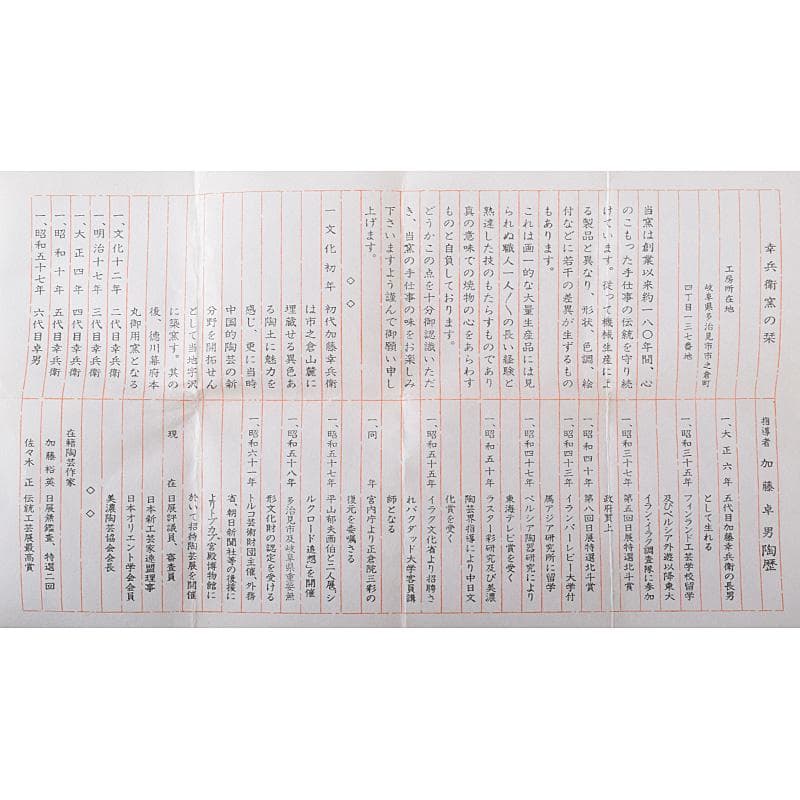 幸兵衛窯の栞
工房所在地
岐阜県多治見市市之倉町
四丁目一三七番地
当窯は創業以来約一八〇年間、心
のこもった手仕事の伝統を守り続
けています。従って機械生産によ
る製品と異なり、形状、色調、絵
付などに若干の差異が生ずるもの
もあります。
これは画一的な大量生産品には見
られぬ職人一人〳〵の長い経験と
熟達した技のもたらすものであり
真の意味での焼物の心をあらわす
ものと自負しております。
どうかこの点を十分御認識いただ
き、当窯の手仕事の味をお楽しみ
下さいますよう謹んで御願い申し
上げます。
◇ ◇
一 文化初年 初代加藤幸兵衛
は市之倉山麓に
埋蔵せる異色あ
る陶土に魅力を
感じ、更に当時
中国的陶芸の新
分野を開拓せん
として当地字沢
に築窯す。其の
後、徳川幕府本
丸御用窯となる
一、文化十二年 二代目幸兵衛
一、明治十七年 三代目幸兵衛
一、大正四年 四代目幸兵衛
一、昭和十年 五代目幸兵衛
一、昭和五十七年 六代目卓男
指導者 加藤卓男陶歴
一、大正六年 五代目加藤幸兵衛の長男
として生れる
一、昭和三十五年 フィンランド工芸学校留学
及びペルシア外遊以降東大
イラン・イラク調査隊に参加
一、昭和三十七年 第五回日展特選北斗賞
政府買上
一、昭和四十年 第八回日展特選北斗賞
一、昭和四十三年 イラン・パーレビー大学付
属アジア研究所に留学
一、昭和四十八年 ペルシア陶器研究により
東海テレビ賞を受く
一、昭和五十年 ラスター彩研究及び美濃
陶芸界指導により中日文
化賞を受く
一、昭和五十五年 イラク文化省より招聘さ
れバクダッド大学客員講
師となる
一、同 年 宮内庁より正倉院三彩の
復元を委嘱さる
一、昭和五十七年 平山郁夫画伯と二人展、「シ
ルクロード追想」を開催
一、昭和五十八年 多治見市及岐阜県重要無
形文化財の認定を受ける
一、昭和六十一年 トルコ芸術財団主催、外務
省、朝日新聞社等の後援に
よりトプカプ宮殿博物館に
於いて招待陶芸展を開催
現 在 日展評議員、審査員
日本新工芸家連盟理事
日本オリエント学会会員
美濃陶芸協会会長
◇ ◇
在籍陶芸作家
加藤裕英 日展無鑑査、特選二回
佐々木正 伝統工芸展最高賞